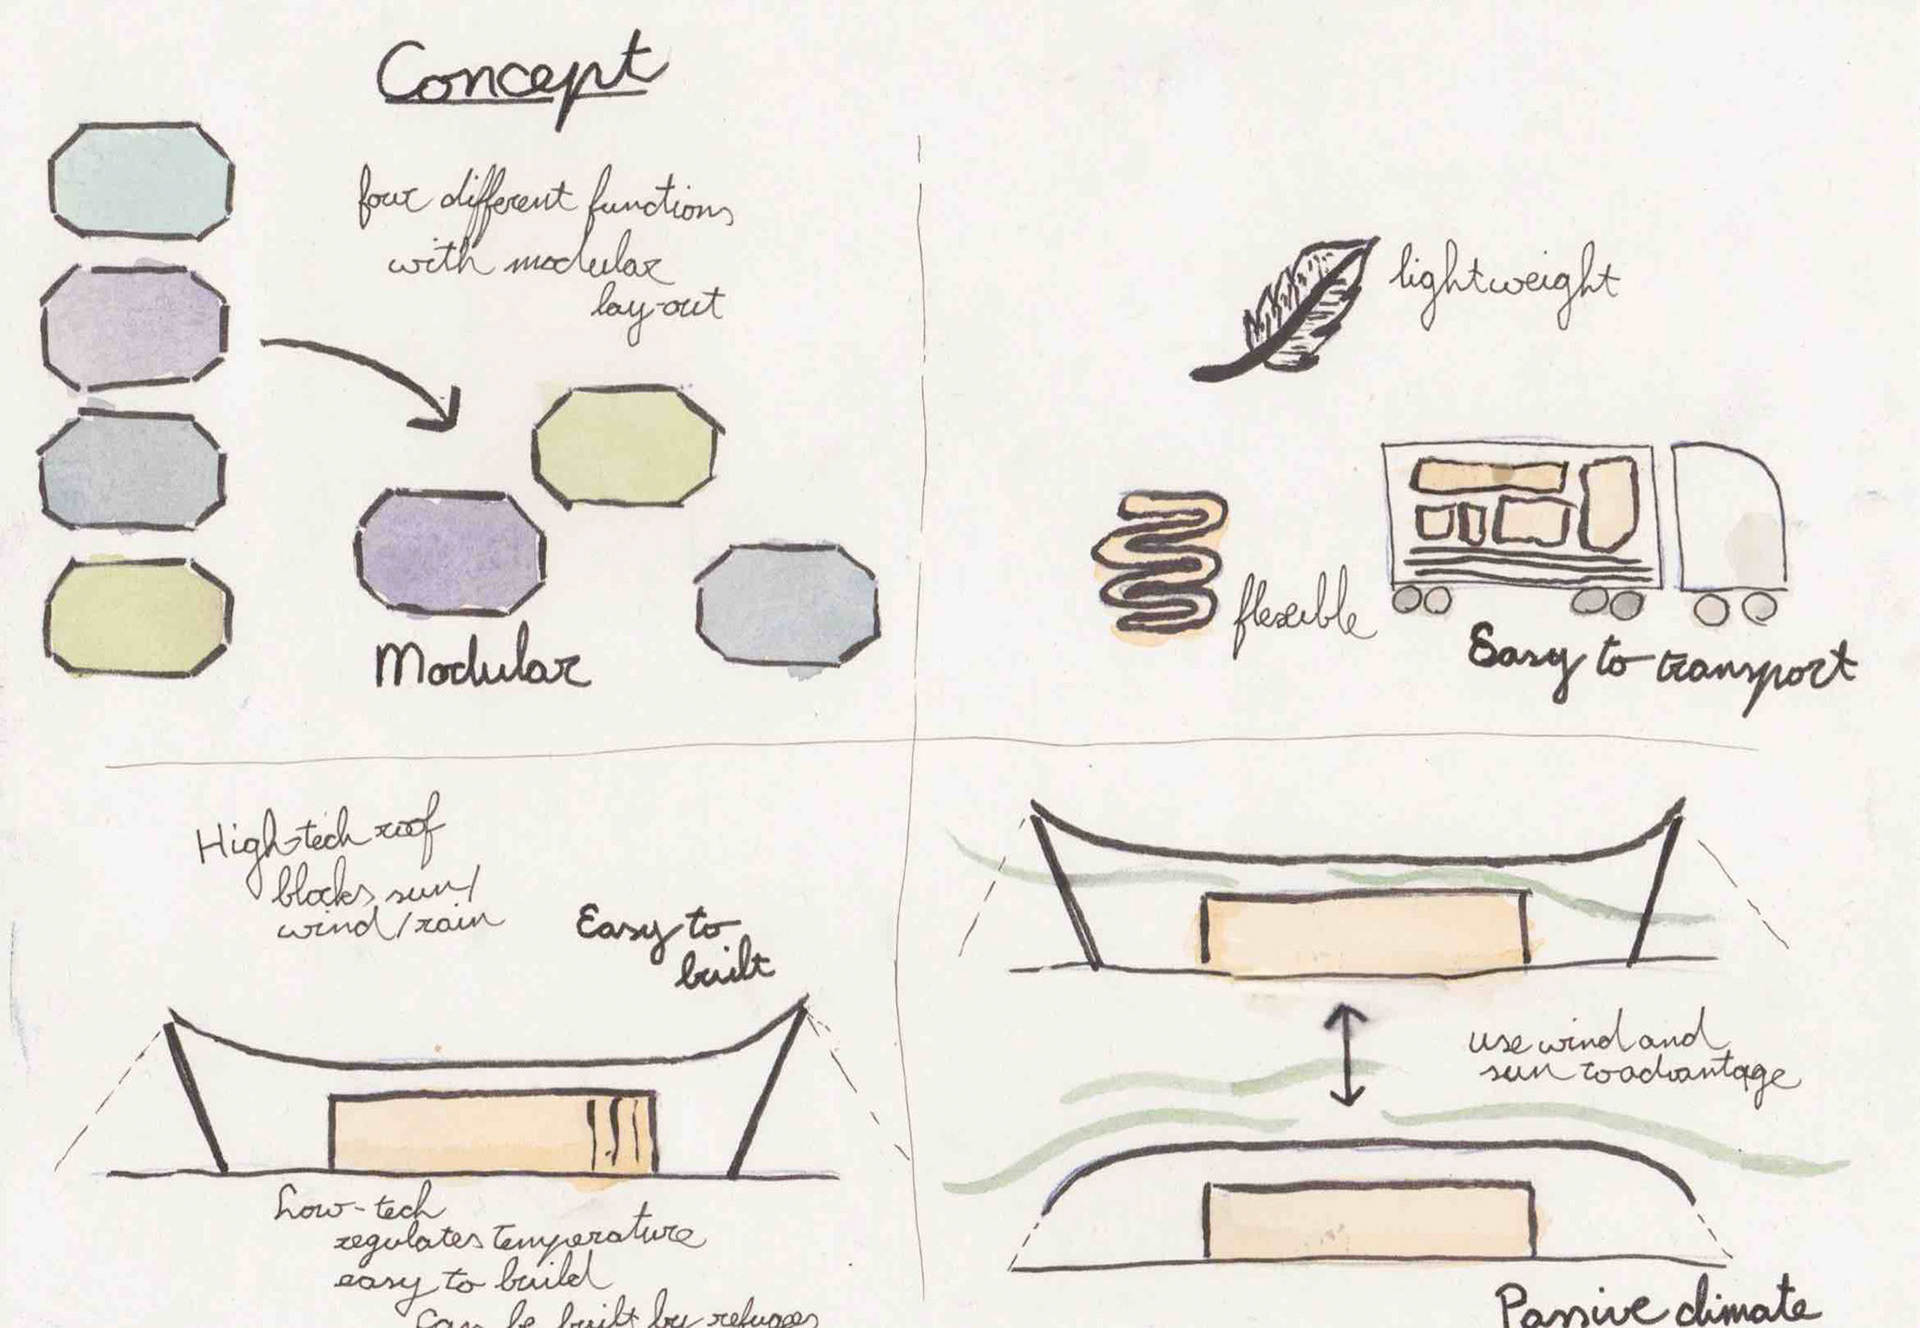 Concept
four different functions
with modular
lay-out
Modular
lightweight
flexible
Easy to transport
High-tech roof
blocks sun/
wind/rain
Easy to
built
Low-tech
regulates temperature
easy to build
Can be built by refugees
use wind and
sun to advantage
Passive climate